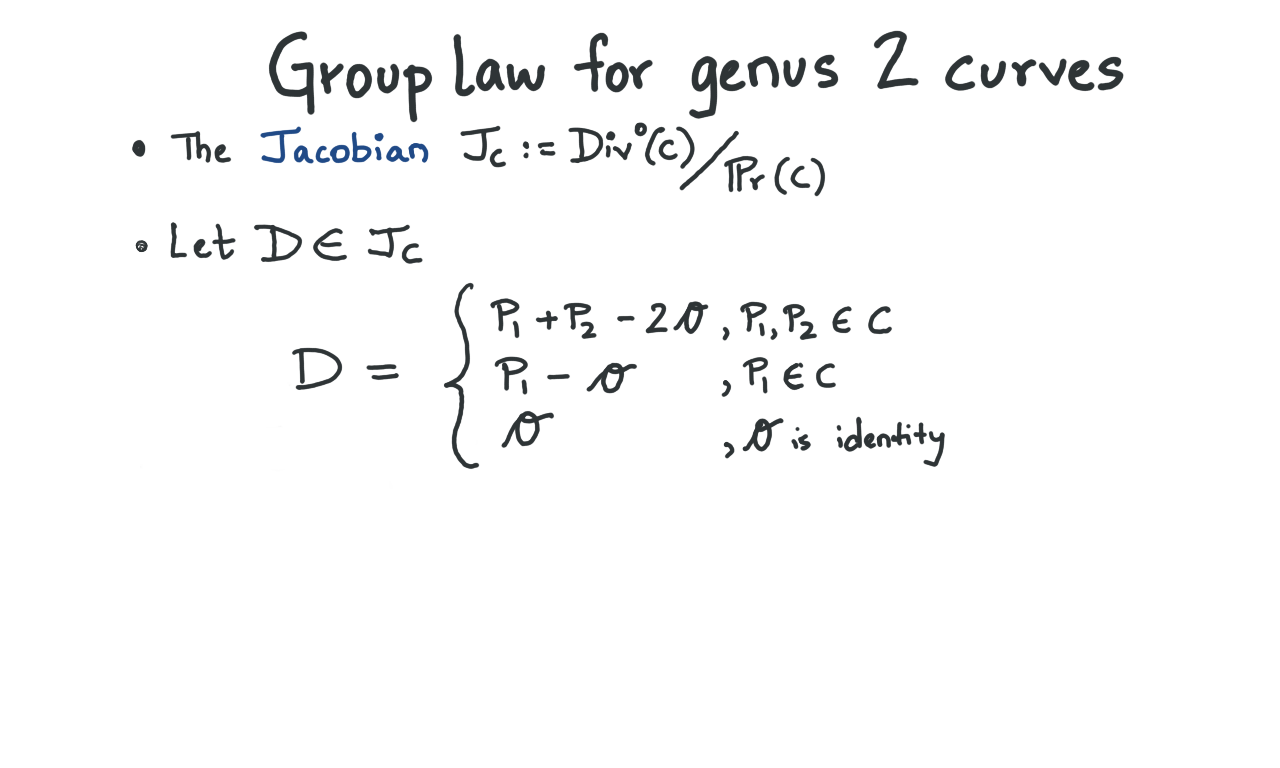 Group law for genus 2 curves
• The Jacobian J_C := Div⁰(C)/Pr(C)
• Let D ∈ J_C
D = { P₁ + P₂ - 2𝒪 , P₁, P₂ ∈ C
P₁ - 𝒪 , P₁ ∈ C
𝒪 , 𝒪 is identity